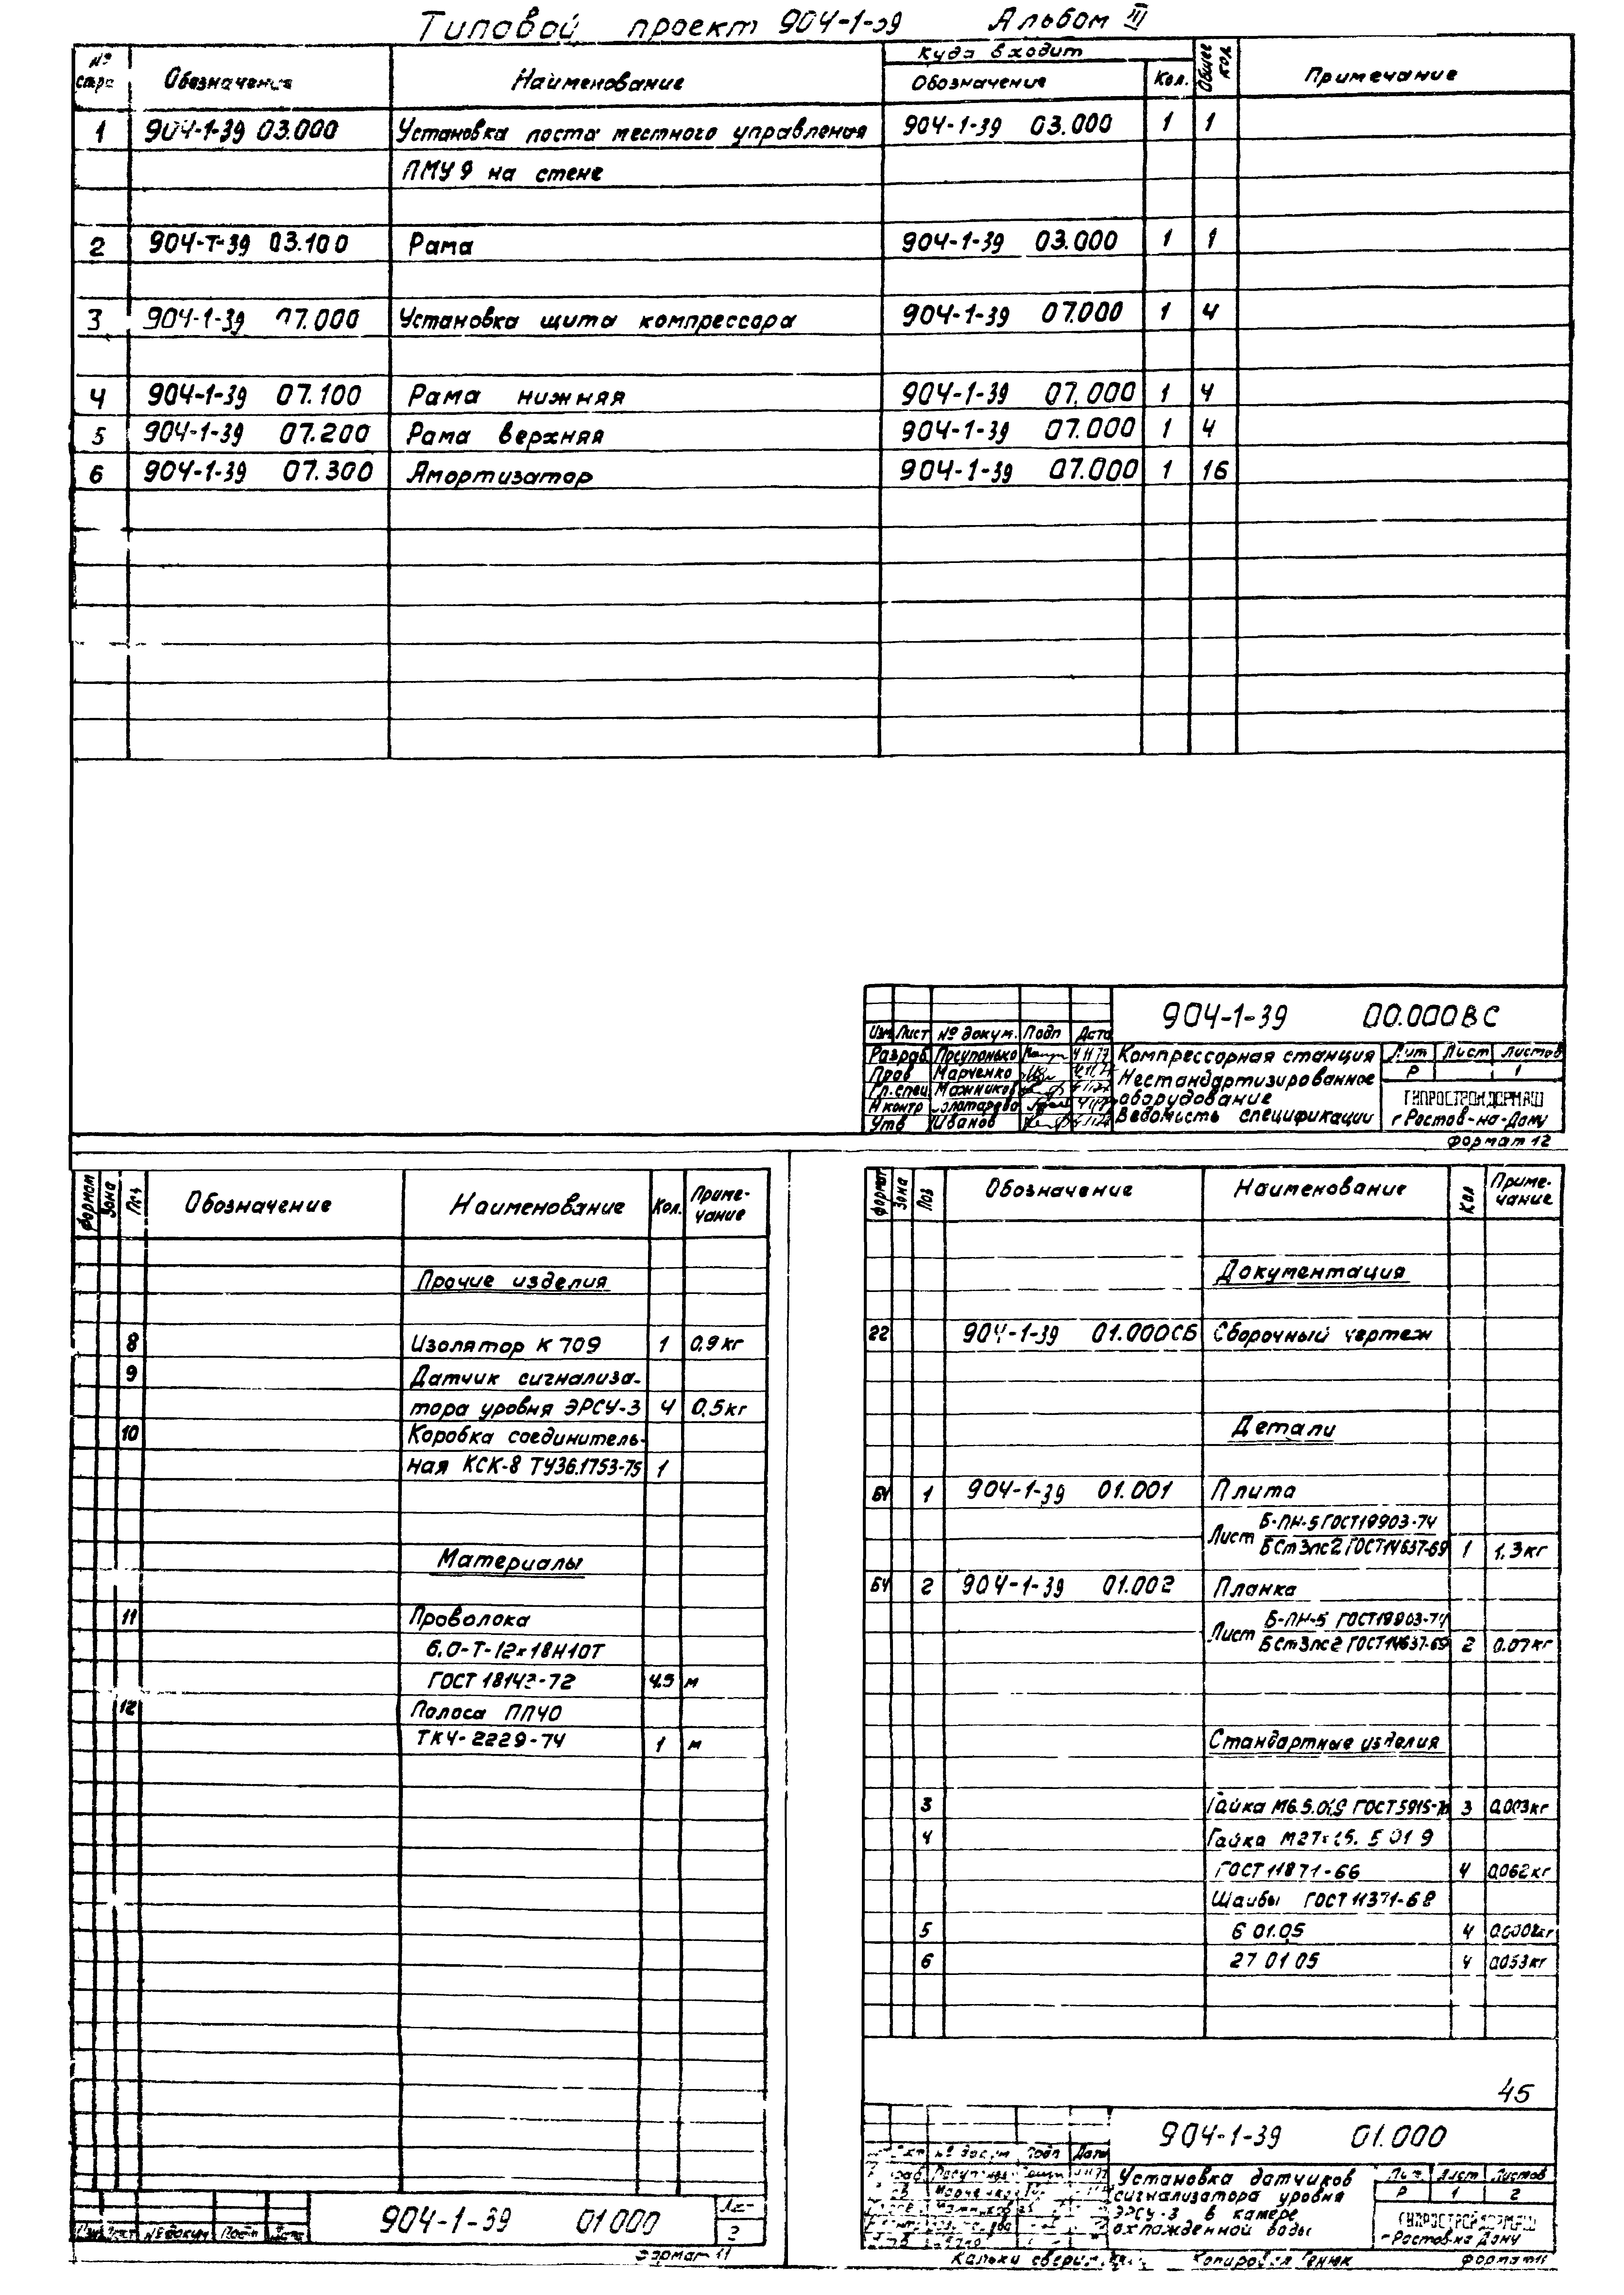 Типовой проект 904-1-39 Альбом III
№ стра Обозначения Наименование Куда входит Общее кол. Примечание
Обозначение Кол.
1 904-1-39 03.000 Установка поста местного управления 904-1-39 03.000 1 1
ПМУ 9 на стене
2 904-Т-39 03.100 Рама 904-1-39 03.000 1 1
3 904-1-39 07.000 Установка щита компрессора 904-1-39 07.000 1 4
4 904-1-39 07.100 Рама нижняя 904-1-39 07.000 1 4
5 904-1-39 07.200 Рама верхняя 904-1-39 07.000 1 4
6 904-1-39 07.300 Амортизатор 904-1-39 07.000 1 16
904-1-39 00.000ВС
Изм Лист № докум. Подп Дата
Разраб
Пров Марченко
Гл.спец. Мажников
Н контр
Утв Иванов
Компрессорная станция
Нестандартизированное
оборудование
Ведомость спецификации
Лит Лист Листов
Р 1
ГИПРОСТРОЙДОРМАШ
г Ростов-на-Дону
Формат 12
Формат Зона Поз Обозначение Наименование Кол. Приме-
чание
Прочие изделия
8 Изолятор К 709 1 0,9 кг
9 Датчик сигнализа-
тора уровня ЭРСУ-3 4 0,5 кг
10 Коробка соединитель-
ная КСК-8 ТУ36.1753-75 1
Материалы
11 Проволока
6,0-Т-12х18Н10Т
ГОСТ 18143-72 4,5 м
12 Полоса ПП40
ТК4-2229-74 1 м
Изм Лист № докум Подп Дата
904-1-39 01 000
Лист
2
Формат 11
Формат Зона Поз Обозначение Наименование Кол Приме-
чание
Документация
22 904-1-39 01.000СБ Сборочный чертеж
Детали
БЧ 1 904-1-39 01.001 Плита
Лист Б-ПН-5 ГОСТ19903-74
БСт3пс2 ГОСТ14637-69 1 1,3 кг
БЧ 2 904-1-39 01.002 Планка
Лист Б-ПН-5 ГОСТ19903-74
БСт3пс2 ГОСТ14637-69 2 0.07 кг
Стандартные изделия
3 Гайка М6.5.019 ГОСТ5915-70 3 0,003кг
4 Гайка М27х1,5. 5 01 9
ГОСТ 11871-66 4 0,062 кг
Шайбы ГОСТ 11371-68
5 6 01.05 4
6 27 01 05 4 0,053 кг
45
904-1-39 01.000
№ докум Подп Дата
Установка датчиков
сигнализатора уровня
ЭРСУ-3 в камере
охлажденной воды
Лит. Лист Листов
Р 1 2
ГИПРОСТРОЙДОРМАШ
г Ростов-на Дону
Копировал Генюк Формат 11